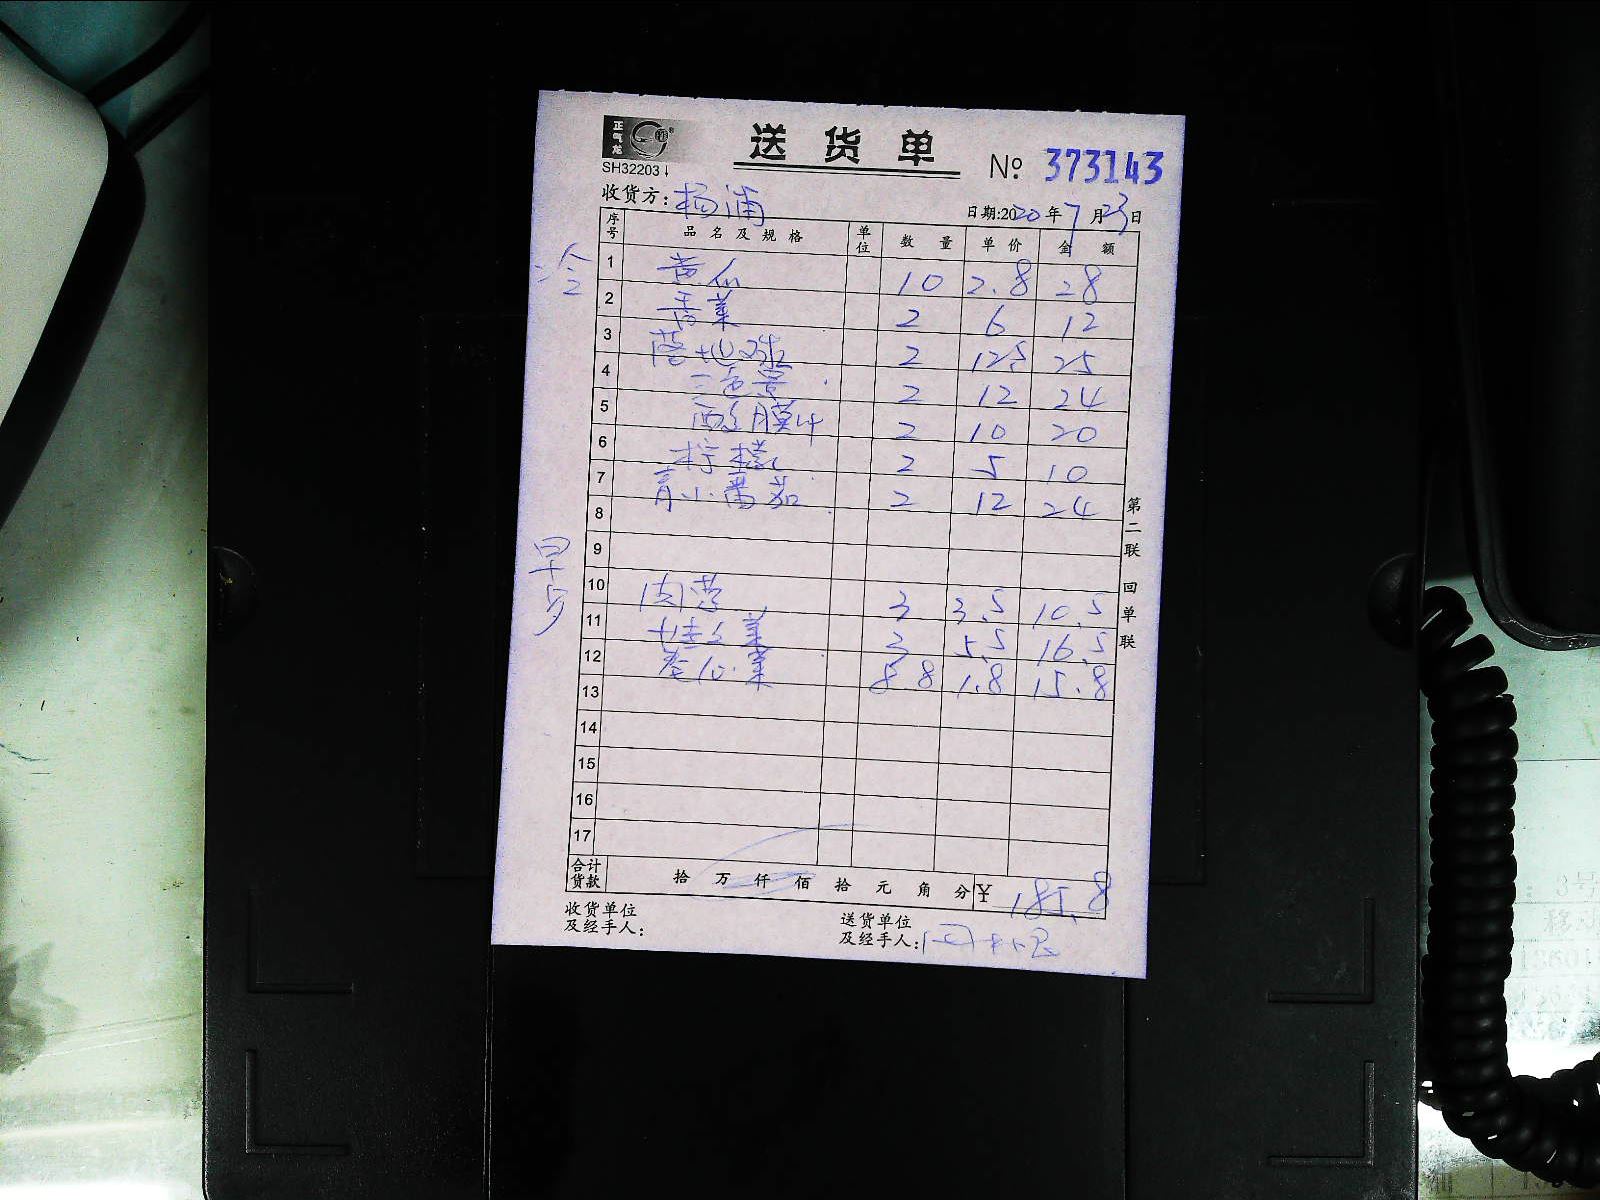 正气龙
送货单
SH32203
№ 373143
收货方: 杨浦
日期:2020年7月23日
序号 品名及规格 单位 数量 单价 金额
冷
1 黄瓜 10 2.8 28
2 香菜 2 6 12
3 落地球 2 12.5 25
4 三色堇 2 12 24
5 酸膜叶 2 10 20
6 柠檬 2 5 10
7 青小番茄 2 12 24
8
9
早
10 肉葱 3 3.5 10.5
11 3 5.5 16.5
12 卷心菜 8.8 1.8 15.8
13
14
15
16
17
合计货款 拾万仟佰拾元角分 ¥ 185.8
收货单位及经手人:
送货单位及经手人:
第二联 回单联